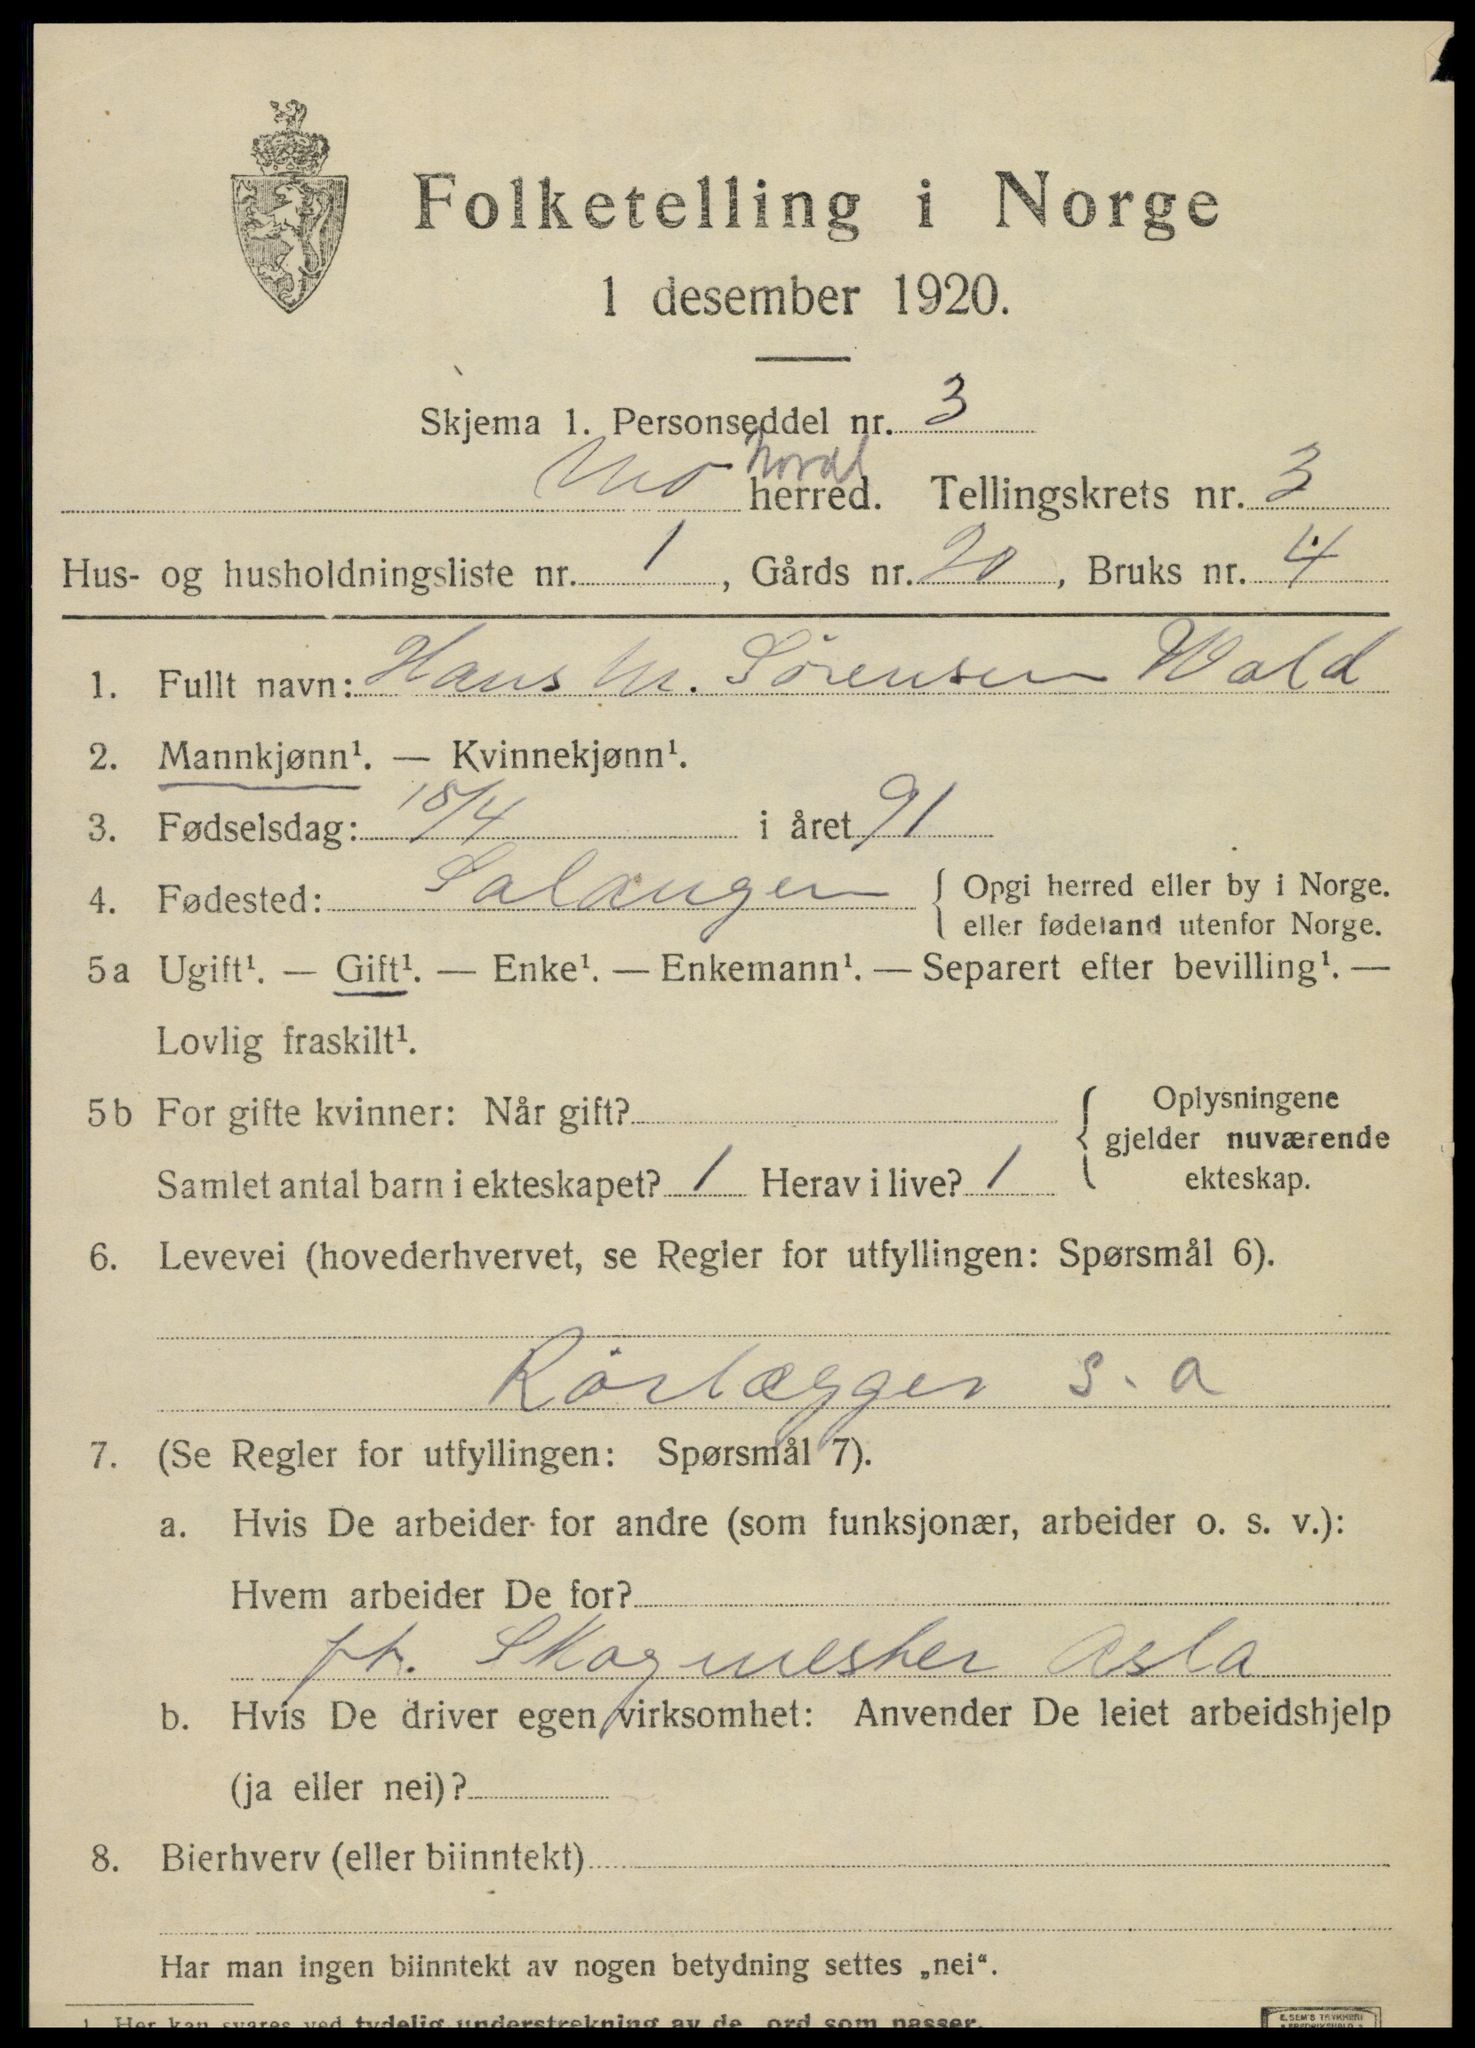 Folketelling i Norge
1 desember 1920.
Skjema 1. Personseddel nr. 3
Nordl
Mo herred. Tellingskrets nr. 3
Hus- og husholdningsliste nr. 1, Gårds nr. 20, Bruks nr. 4
1. Fullt navn: Hans M. Sörensen Wold
2. Mannkjønn¹. — Kvinnekjønn¹.
3. Fødselsdag: 15/4 i året 91
4. Fødested: Salangen { Opgi herred eller by i Norge.
eller fødeland utenfor Norge.
5a Ugift¹. — Gift¹. — Enke¹. — Enkemann¹. — Separert efter bevilling¹. —
Lovlig fraskilt¹.
5b For gifte kvinner: Når gift? { Oplysningene
gjelder nuværende
Samlet antal barn i ekteskapet? 1 Herav i live? 1 ekteskap.
6. Levevei (hovederhvervet, se Regler for utfyllingen: Spørsmål 6).
Rörlægger s. a
7. (Se Regler for utfyllingen: Spørsmål 7).
a. Hvis De arbeider for andre (som funksjonær, arbeider o. s. v.):
Hvem arbeider De for?
Skogmester Asla
b. Hvis De driver egen virksomhet: Anvender De leiet arbeidshjelp
(ja eller nei)?
8. Bierhverv (eller biinntekt)
Har man ingen biinntekt av nogen betydning settes „nei“.
1. Her kan svares ved tydelig understrekning av de ord som passer.
E. SEM'S TRYKKERI
FREDRIKSHALD